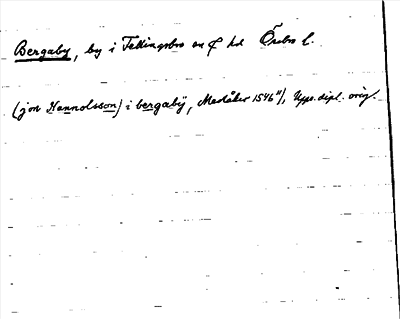 Bergaby, by i Fellingsbro sn o hd Örebro l.
(jon Hannolsson) i bergabÿ, Medåker 1546 11/1, Upps. dipl. orig.